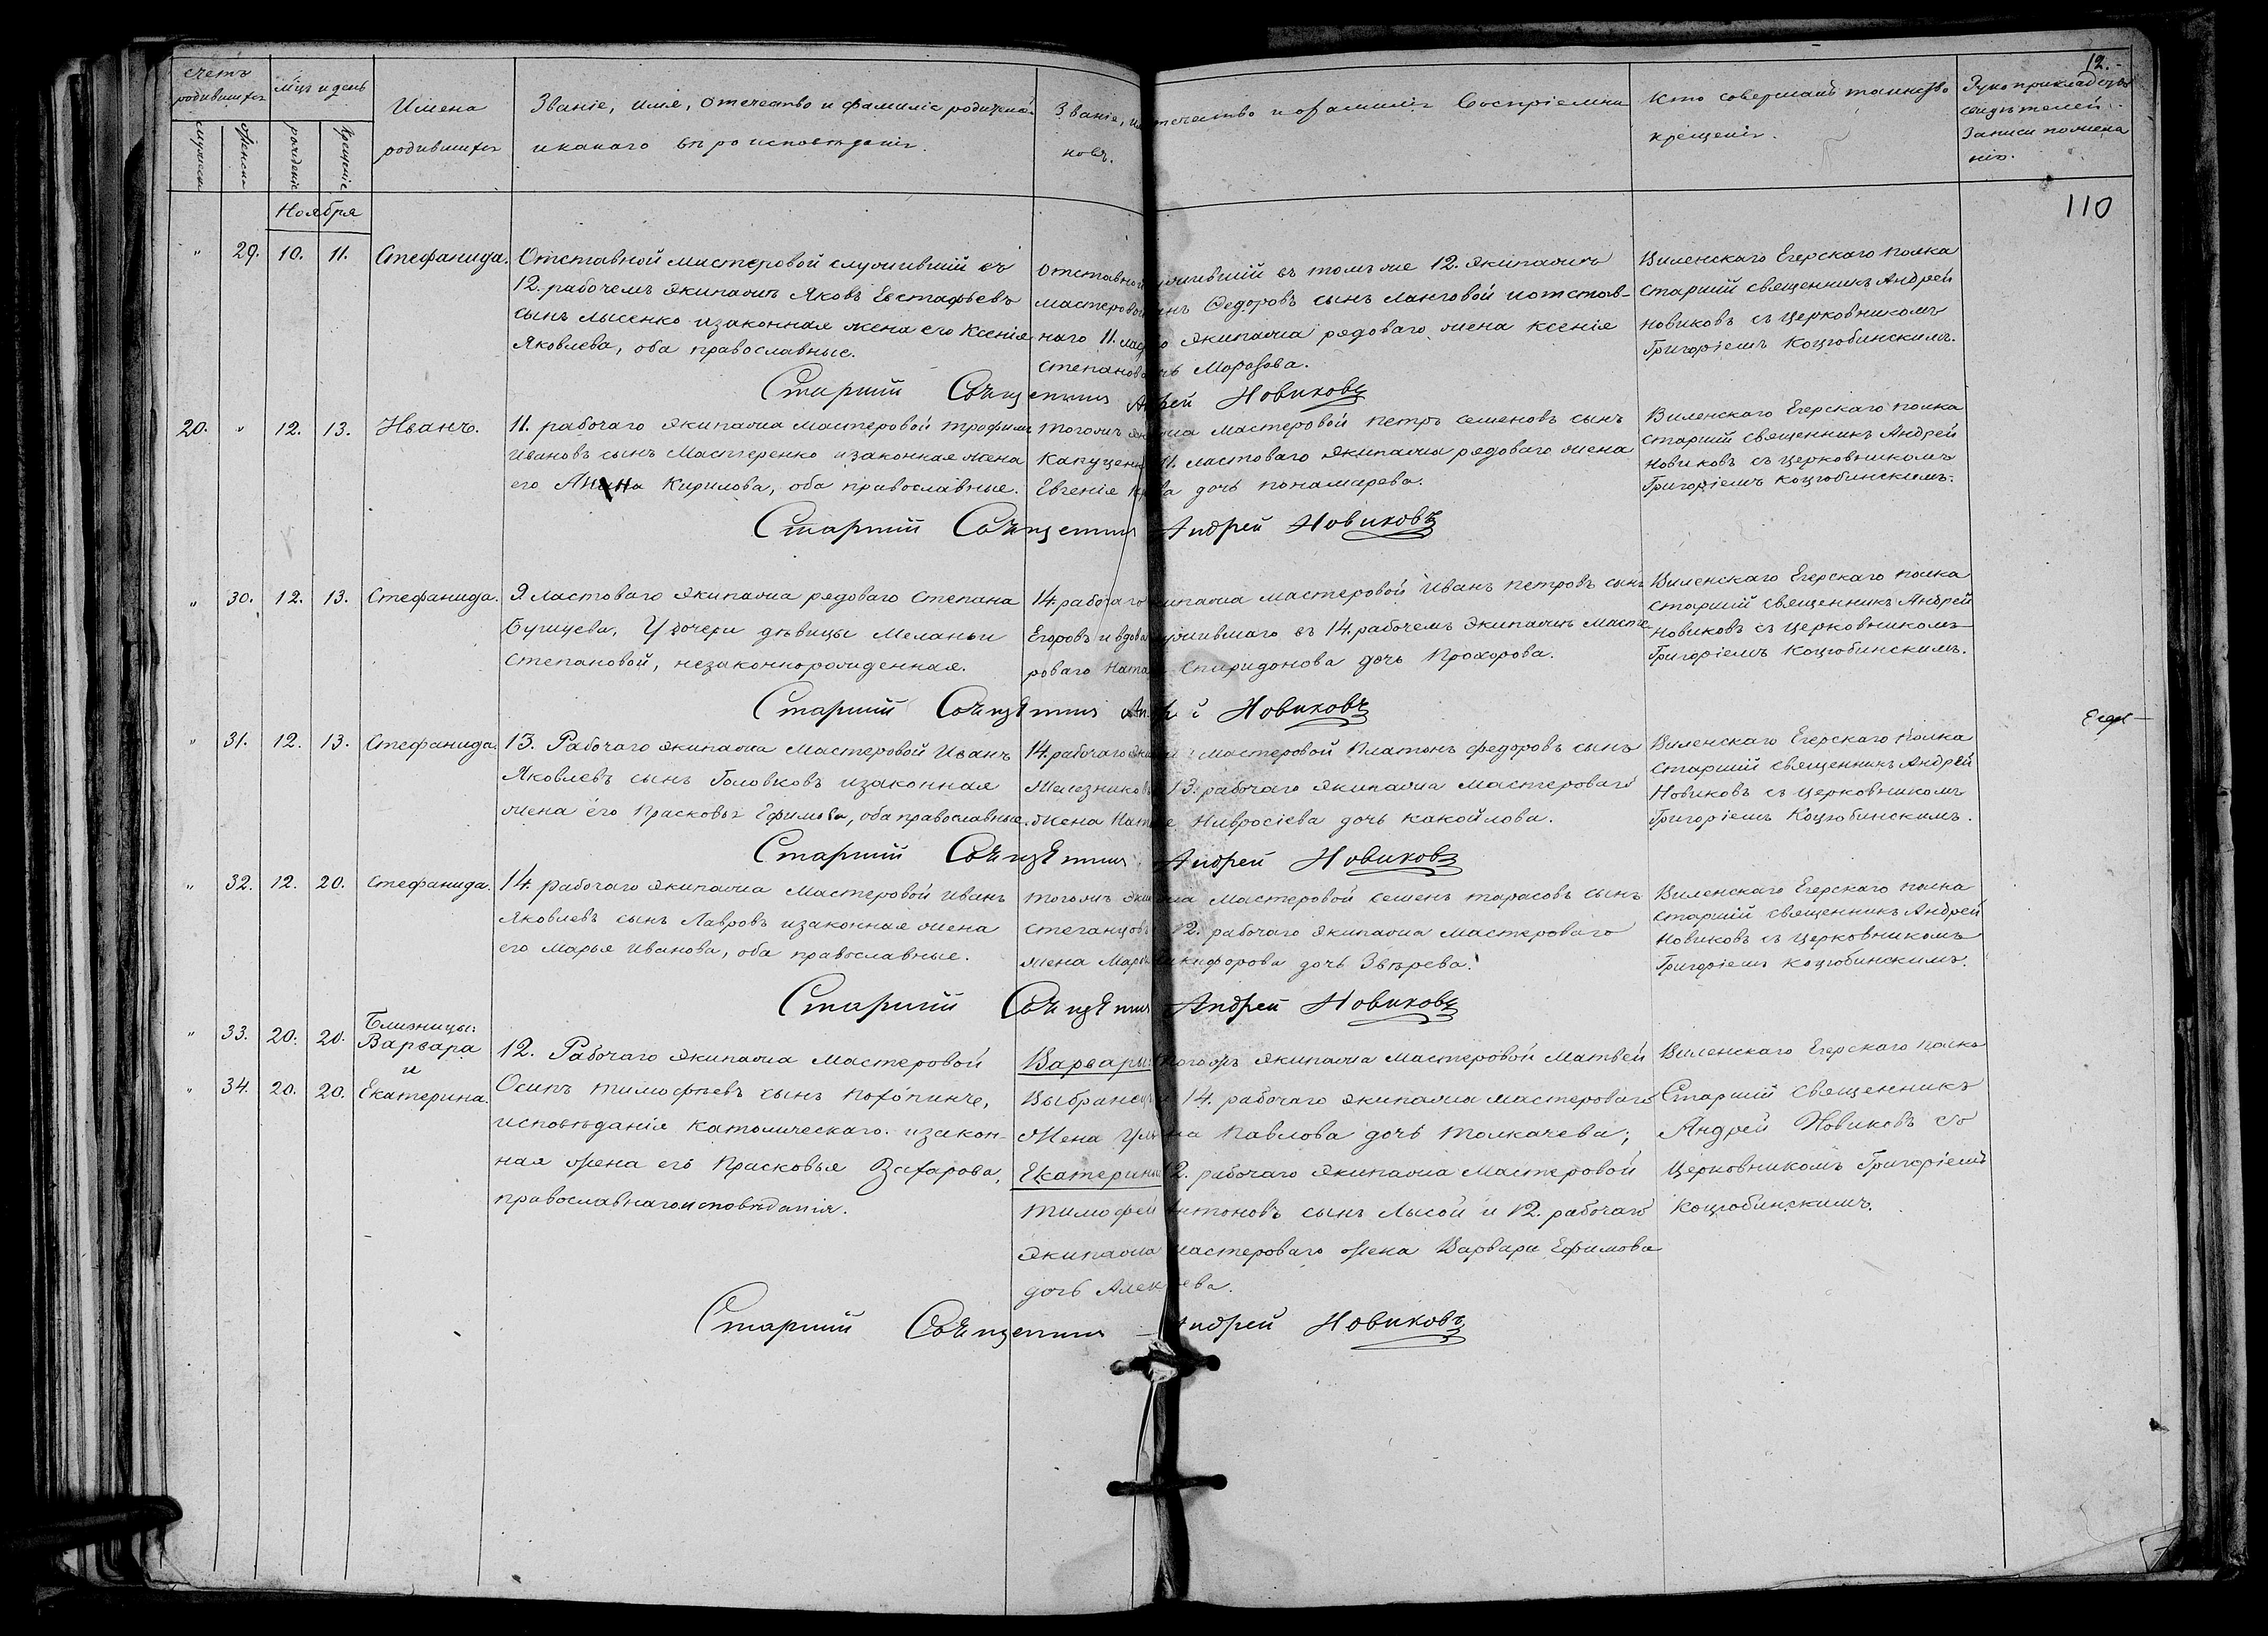 12.
счетъ родившихся
мѣц и день
Имена родившихся
Званіе, имя, отечество и фамилія родителей
и какого вѣроисповѣданія.
Званіе, отечество и фамилія Воспріемни-
новъ.
Кто совершалъ таинство
крещенія.
Рукоприкладство
свидѣтелей
записи
мужеска
женска
рожденіе
крещеніе
Ноября
110
" 29. 10. 11. Стефанида.
Отставной мастеровой служившій въ
12. рабочемъ экипажѣ Яковъ Евстафьевъ
сынъ Лысенко и законная жена его Ксенія
Яковлева, оба православные.
Отставной служившій въ томъ же 12. экипажѣ
мастеровой Федоровъ сынъ Ланговой и отстав-
наго 11. экипажа рядоваго жена Ксенія
Степанова Морозова.
Виленскаго Егерскаго полка
старшій священникъ Андрей
Новиковъ съ церковникомъ
Григоріемъ Коцюбинскимъ.
Старшій Священникъ Андрей Новиковъ
20. " 12. 13. Иванъ.
11. рабочаго экипажа мастеровой Трофимъ
Ивановъ сынъ Мастеренко и законная жена
его Анна Кирилова, оба православные.
Того жъ экипажа мастеровой Петръ Семеновъ сынъ
11. ластоваго экипажа рядоваго жена
Евгенія дочь Понамарева.
Виленскаго Егерскаго полка
старшій священникъ Андрей
Новиковъ съ церковникомъ
Григоріемъ Коцюбинскимъ.
Старшій Священникъ Андрей Новиковъ
" 30. 12. 13. Стефанида.
9 Ластоваго экипажа рядоваго Степана
Бушуева, У дочери дѣвицы Меланьи
Степановой, незаконнорожденная.
14. рабочаго экипажа мастеровой Иванъ Петровъ сынъ
Егоровъ и вдова служившаго въ 14. рабочемъ экипажѣ масте-
роваго Спиридонова дочь Прохорова.
Виленскаго Егерскаго полка
старшій священникъ Андрей
Новиковъ съ церковникомъ
Григоріемъ Коцюбинскимъ.
Старшій Священникъ Новиковъ
" 31. 12. 13. Стефанида.
13. Рабочаго экипажа Мастеровой Иванъ
Яковлевъ сынъ Головковъ и законная
жена его Прасковья Ефимова, оба православные.
14. рабочаго экипажа Мастеровой Платонъ Федоровъ сынъ
Железниковъ 13. рабочаго экипажа мастероваго
жена дочь
Виленскаго Егерскаго полка
старшій священникъ Андрей
Новиковъ съ церковникомъ
Григоріемъ Коцюбинскимъ.
Старшій Священникъ Андрей Новиковъ
" 32. 12. 20. Стефанида.
14. рабочаго экипажа Мастеровой Иванъ
Яковлевъ сынъ Лавровъ и законная жена
его Марья Иванова, оба православные.
Того жъ экипажа Мастеровой Семенъ Тарасовъ сынъ
Стеганцовъ 12. рабочаго экипажа мастероваго
жена Марья Никифорова дочь Звѣрева.
Виленскаго Егерскаго полка
старшій священникъ Андрей
Новиковъ съ церковникомъ
Григоріемъ Коцюбинскимъ.
Старшій Священникъ Андрей Новиковъ
Близницы:
" 33. 20. 20. Варвара
и
" 34. 20. 20. Екатерина.
12. Рабочаго экипажа Мастеровой
Осипъ Тимофѣевъ сынъ
исповѣданія католическаго и закон-
ная жена его Прасковья Захарова,
православнаго исповѣданія.
Варвары: того жъ экипажа мастеровой Матвей
14. рабочаго экипажа мастероваго
Жена Павлова дочь Толкачева;
Екатерины 12. рабочаго экипажа Мастеровой
Тимофей Антоновъ сынъ Лысой и 12. рабочаго
экипажа мастероваго жена Варвара Ефимова
дочь
Виленскаго Егерскаго полка
Старшій Священникъ
Андрей Новиковъ со
Церковникомъ Григоріемъ
Коцюбинскимъ.
Старшій Священникъ Андрей Новиковъ